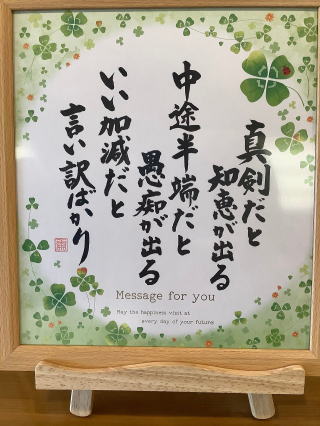 真剣だと
知恵が出る
中途半端だと
愚痴が出る
いい加減だと
言い訳ばかり
Message for you
May the happiness visit at
every day of your future